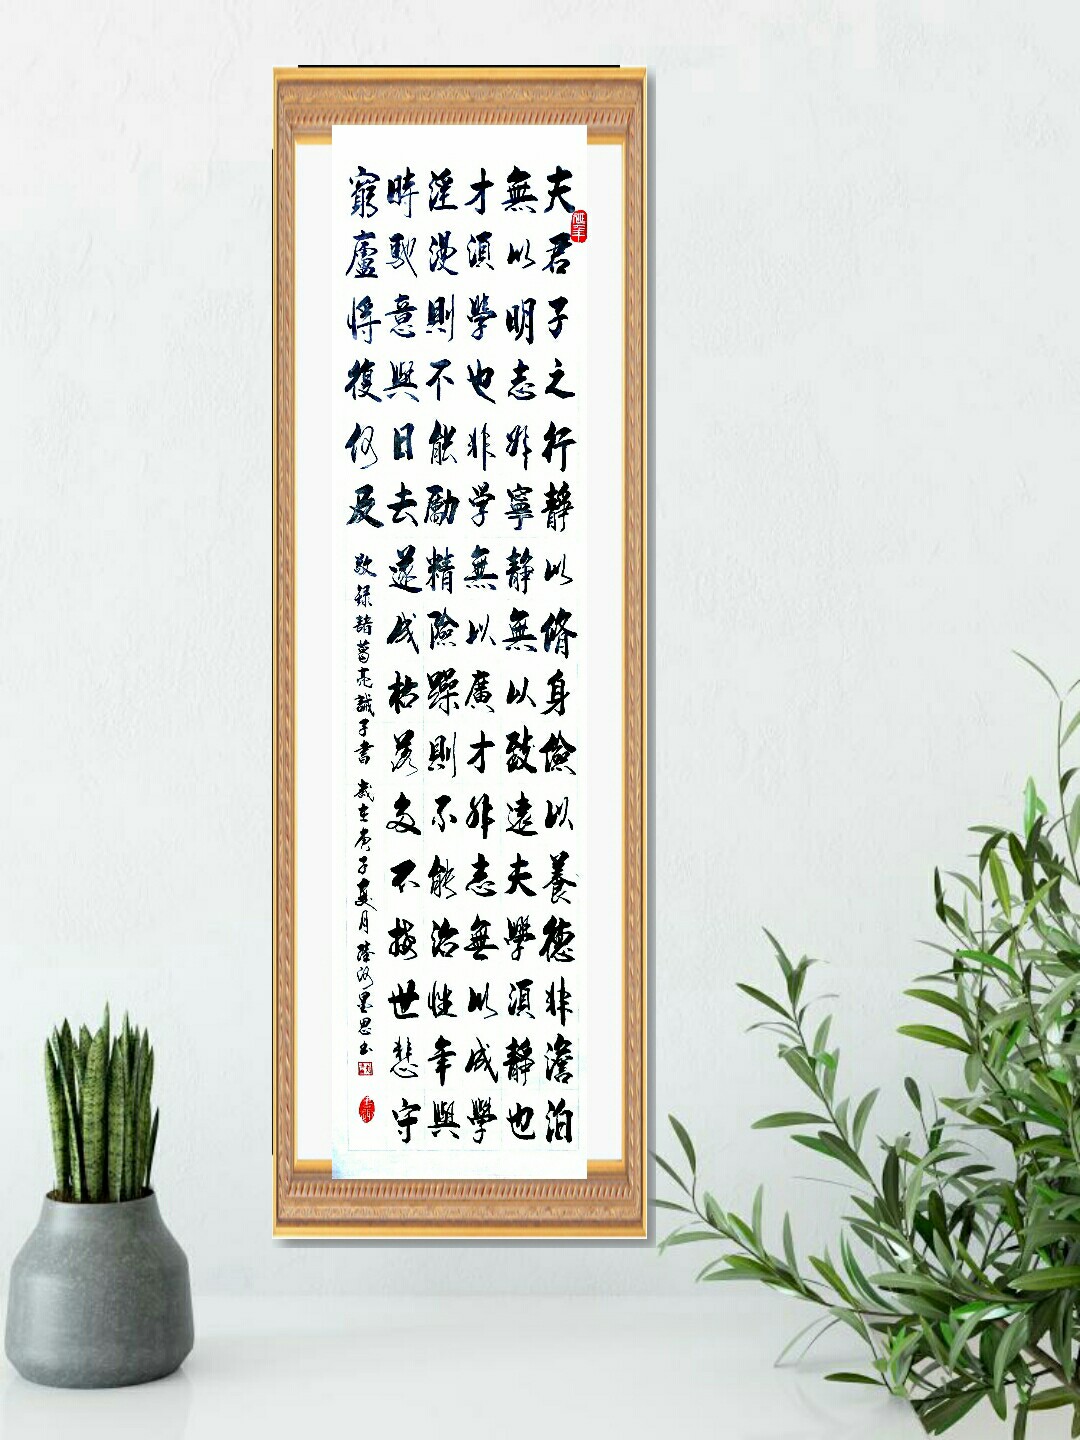 夫君子之行靜以脩身儉以養德非澹泊
無以明志非寧靜無以致遠夫學須靜也
才須學也非学無以廣才非志無以成學
淫漫則不能勵精險躁則不能治性年與
時馳意與日去遂成枯落多不接世悲守
窮廬將復何及
敬録諸葛亮誡子書 歲在庚子夏月 陸河墨思书